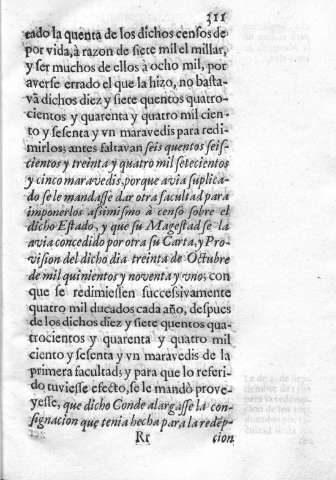 311
tado la quenta de los dichos censos de
por vida, à razon de siete mil el millar,
y ser muchos de ellos à ocho mil, por
averse errado el que la hizo, no basta-
vā dichos diez y siete quentos quatro-
cientos y quarenta y quatro mil cien-
to y sesenta y vn maravedis para redi-
mirlos; antes faltavan seis quentos seis-
cientos y treinta y quatro mil setecientos
y cinco maravedis, porque avia suplica-
do se le mandasse dar otra facultad para
imponerlos assimismo à censo sobre el
dicho Estado, y que su Magestad se la
avia concedido por otra su Carta, y Pro-
vision del dicho dia treinta de Octubre
de mil quinientos y noventa y vno; con
que se redimiessen successivamente
quatro mil ducados cada año, despues
de los dichos diez y siete quentos qua-
trocientos y quarenta y quatro mil
ciento y sesenta y vn maravedis de la
primera facultad; y para que lo referi-
do tuviesse efecto, se le mandò prove-
yesse, que dicho Conde alargasse la con-
signacion que tenia hecha para la redēp-
Rr cion